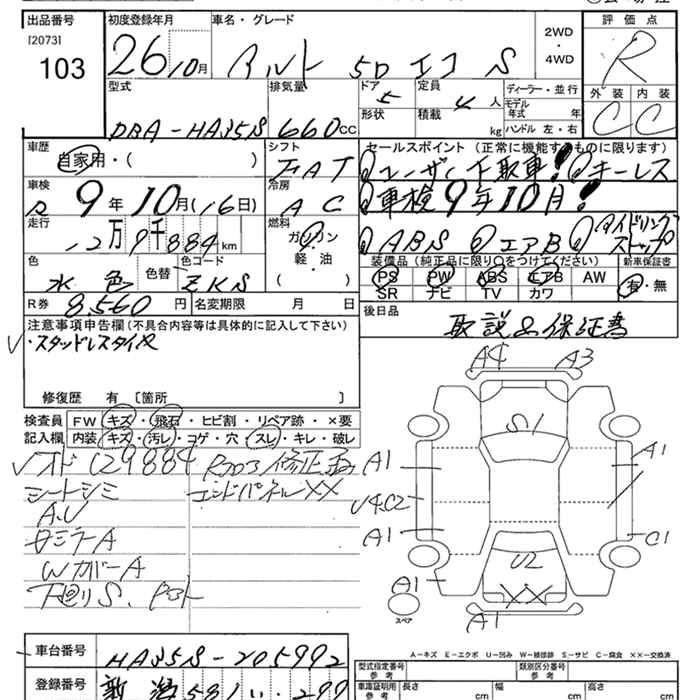 出品番号 初度登録年月 車名・グレード 評価点
[2073] 103
26年10月 アルト 5D エコ S 2WD・4WD R
型式 排気量 ドア 定員 ディーラー・並行 外装 内装
DBA-HA35S 660cc 5 4人 モデル年式 年 C C
形状 積載 kg ハンドル 左・右
車歴 自家用・( ) シフト FAT セールスポイント (正常に機能するものに限ります)
ユーザー下取車! キーレス
車検 9年10月(16日) 冷房 AC
車検9年10月!
走行 12万9千884km 燃料 ガソリン・軽油 ( )
ABS エアB アイドリングストップ
色 水色 色替 色コード ZKS
装備品 (純正品に限り○をつけてください) 新車保証書
PS PW ABS エアB AW 有・無
SR ナビ TV カワ
R券 8,560円 名変期限 月 日
後日品 取説&保証書
注意事項申告欄 (不具合内容等は具体的に記入して下さい)
・スタッドレスタイヤ
修復歴 有 [箇所 ]
検査員記入欄 FW キズ・飛石・ヒビ割・リペア跡・×要
内装 キズ・汚レ・コゲ・穴・スレ・キレ・破レ
129884
シートシミ エンドパネルXX
A.U
Wカバー A
下廻りS.
A4 A3
S1
A1 A1
U4.C2
A1 C1
U2
XX
A1 A1
スペア
A-キズ E-エクボ U-凹み W-補修跡 S-サビ C-腐食 ××-交換済
車台番号 HA35S-205992
登録番号 新潟 581 い 299
型式指定番号 参考 類別区分番号 参考
車庫証明用 参考 長さ cm 幅 cm 高さ cm